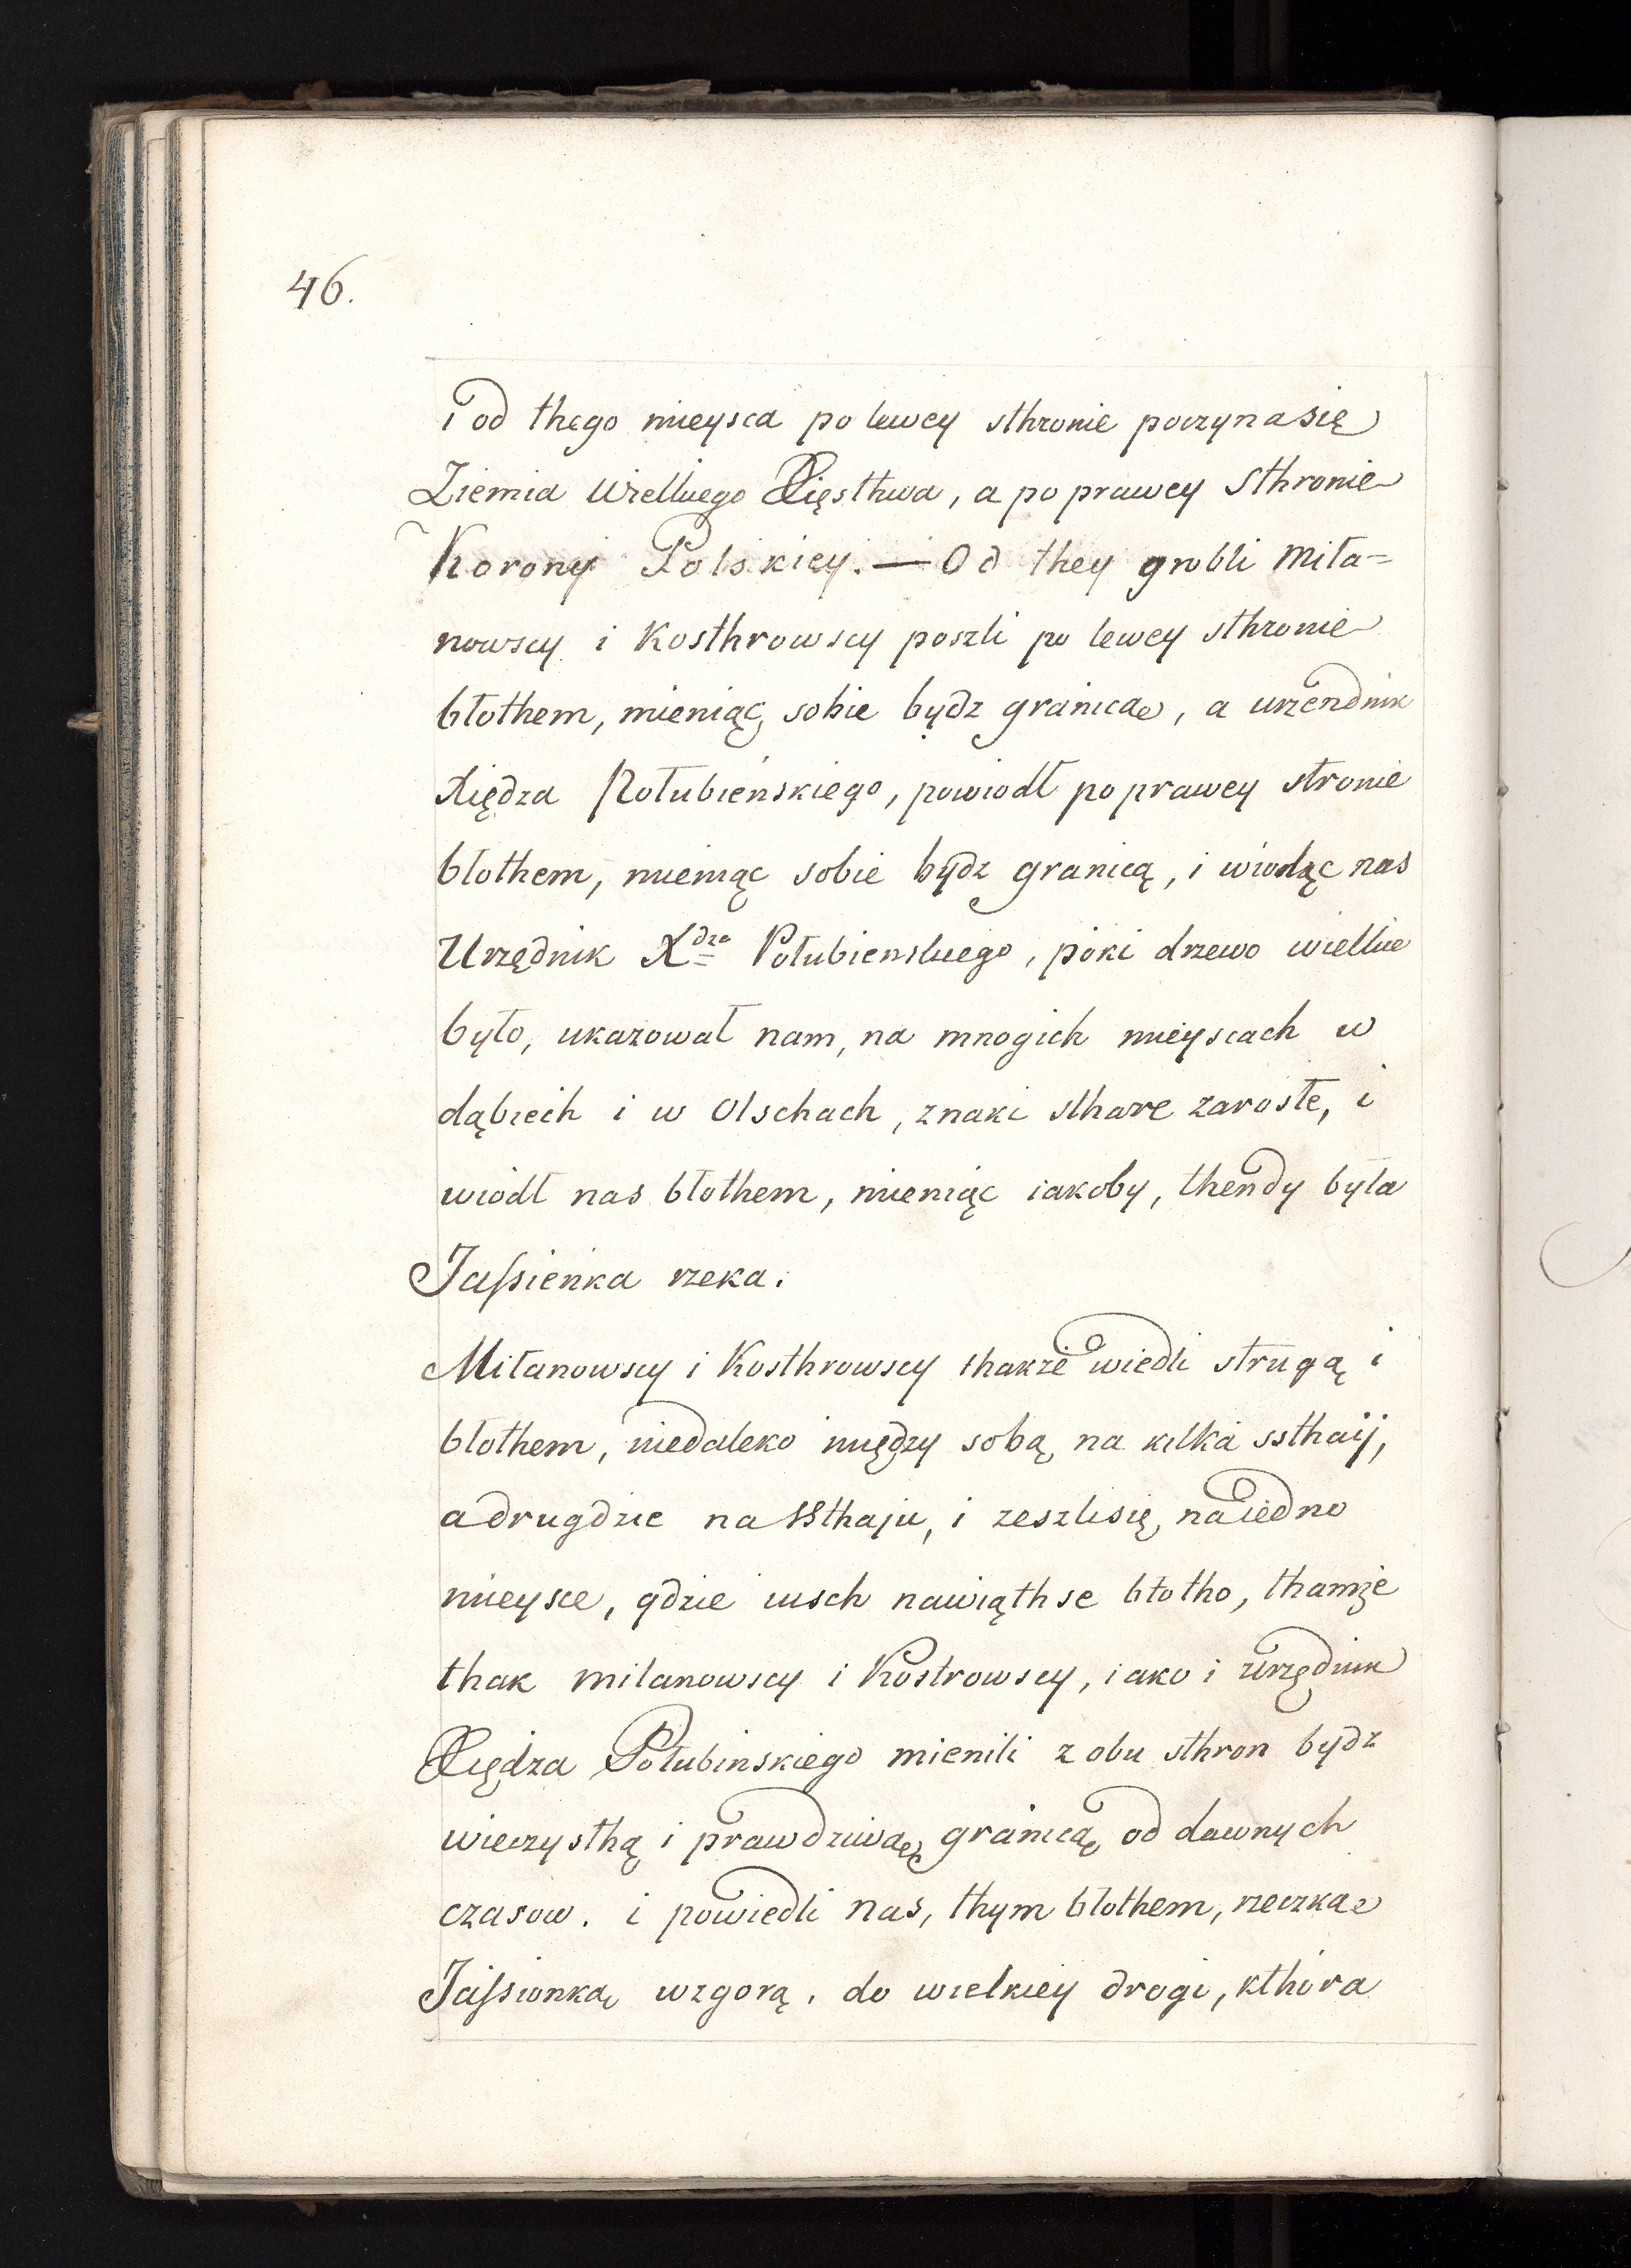 46.
i od thego mieysca po lewey sthronie poczyna się
Ziemia Wielkiego Xięsthwa, a po prawey Sthronie
Korony Polskiey. — Od they grobli Miła=
nowscy i Kosthrowscy poszli po lewey sthronie
błothem, mieniąc, sobie bydz granicą, a urzendnik
Xiędza Połubieńskiego, powiodł po prawey stronie
błothem, mieniąc sobie bydz granicą, i wiodąc nas
Urzędnik Xdza Połubienskiego, póki drzewo wielkie
było, ukazował nam, na mnogich mieyscach w
dąbiech i w Olschach, znaki sthare zarosłe, i
wiódł nas błothem, mieniąc iakoby, thendy była
Jassieńka rzeka.
Miłanowscy i Kosthrowscy thakże wiedli strugą i
błothem, niedaleko między sobą, na kilka ssthaij,
a drugdzie na SSthaju, i zeszli się, na iedno
mieysce, gdzie iusch nawiąthse błotho, thamże
thak milanowscy i Kostrowscy, iako i urzędnik
Xiędza Połubinskiego mienili z obu sthron bydz
wieczysthą i prawdziwą, granicą, od dawnych
czasow. i powiedli nas, thym błothem, rzeczką
Jassionką, wzgorą, do wielkiey drogi, kthóra